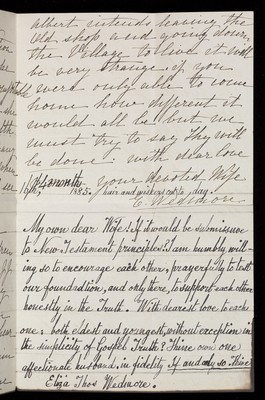 Albert intends leaving the
Old shop and going down
the Village to live it will
be very strange, if you
were only able to come
home how different it
would all be but we
must try to say Thy will
be done with dear love
your devoted Wife
1885. hair and victory to day.
E. Wedmore.
My own dear Wife: If it would be submissive
to New Testament principles: I am humbly will-
ing, so to encourage each other, prayerfully to test
our foundation, and only there, to support each other
honestly in the Truth. With dearest love to each
one: both eldest and youngest, without exception in
the simplicity of Gospel Truth? Thine own one
affectionate husband, in fidelity If and only so Thine
Eliza Thos Wedmore.